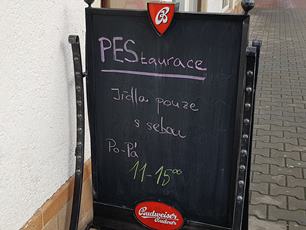 PEStaurace
Jídla pouze
s sebou
Po-Pá
11-15⁰⁰
Budweiser
Budvar